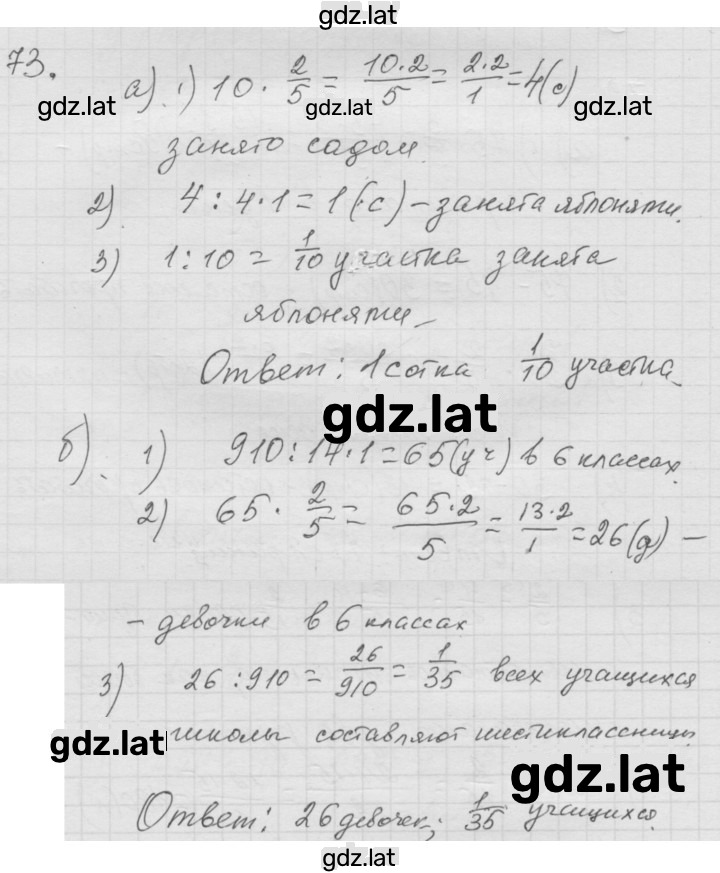 gdz.lat
73.
а) 1) 10 · 2/5 = 10·2/5 = 2·2/1 = 4(с)
gdz.lat gdz.lat gdz.lat
занято садом.
2) 4 : 4·1 = 1 (с) – занята яблонями.
3) 1:10 = 1/10 участка занята
яблонями
Ответ: 1 сотка 1/10 участка
gdz.lat
б) 1) 910:14·1 = 65(уч) в 6 классах.
2) 65 · 2/5 = 65·2/5 = 13·2/1 = 26(д) –
– девочки в 6 классах
3) 26:910 = 26/910 = 1/35 всех учащихся
gdz.lat школы составляют шестиклассницы
gdz.lat
Ответ: 26 девочек; 1/35 учащихся.
gdz.lat